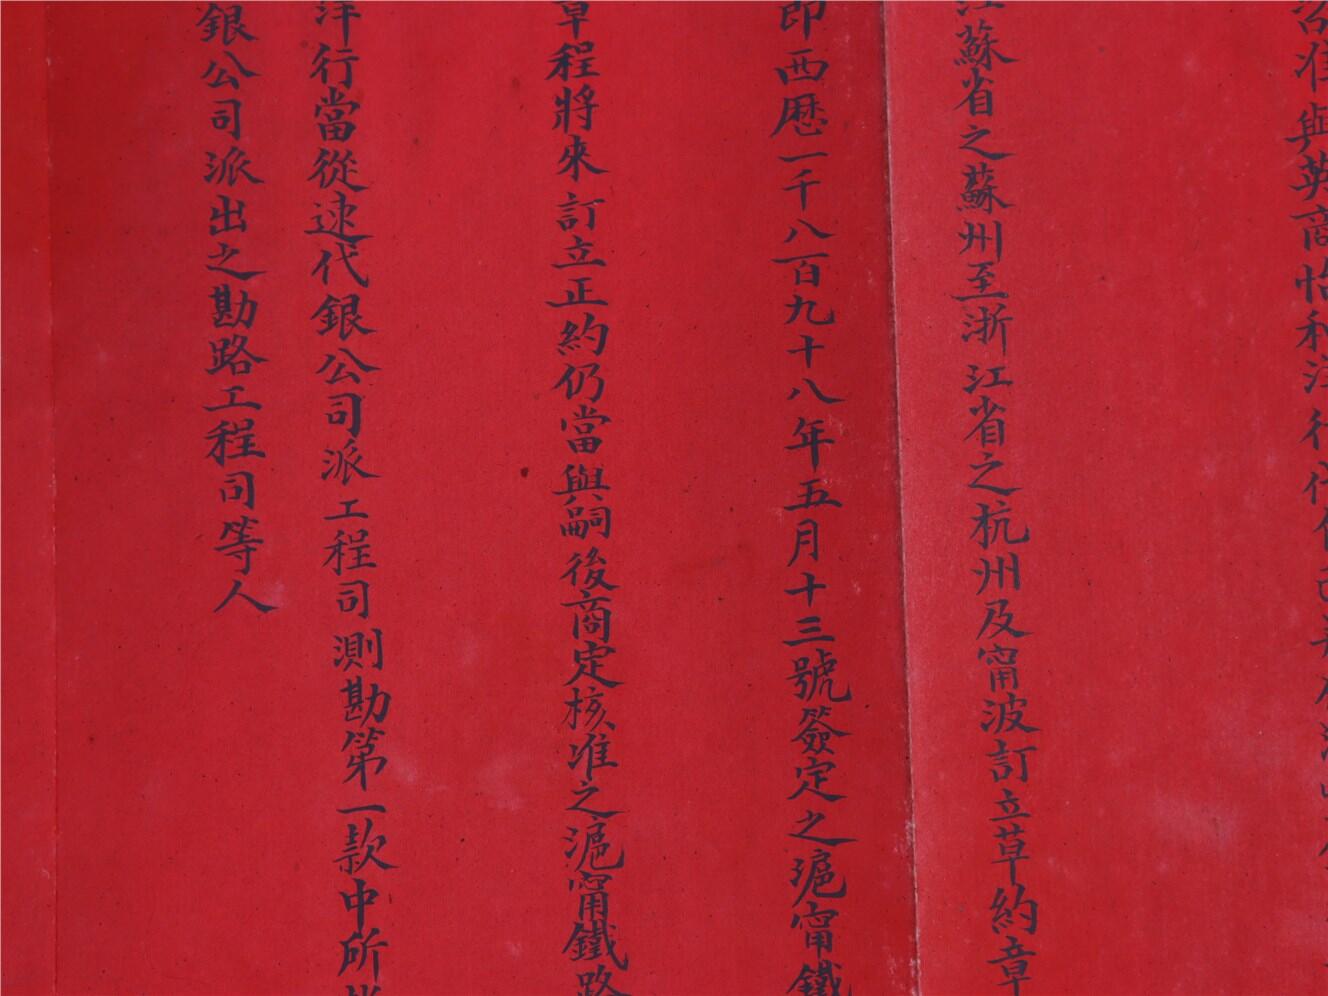 准與英商怡和洋行代
江蘇省之蘇州至浙江省之杭州及甯波訂立草約章
即西曆一千八百九十八年五月十三號簽定之滬甯鐵
章程將來訂立正約仍當與嗣後商定核准之滬甯鐵路
洋行當從速代銀公司派工程司測勘第一款中所
銀公司派出之勘路工程司等人